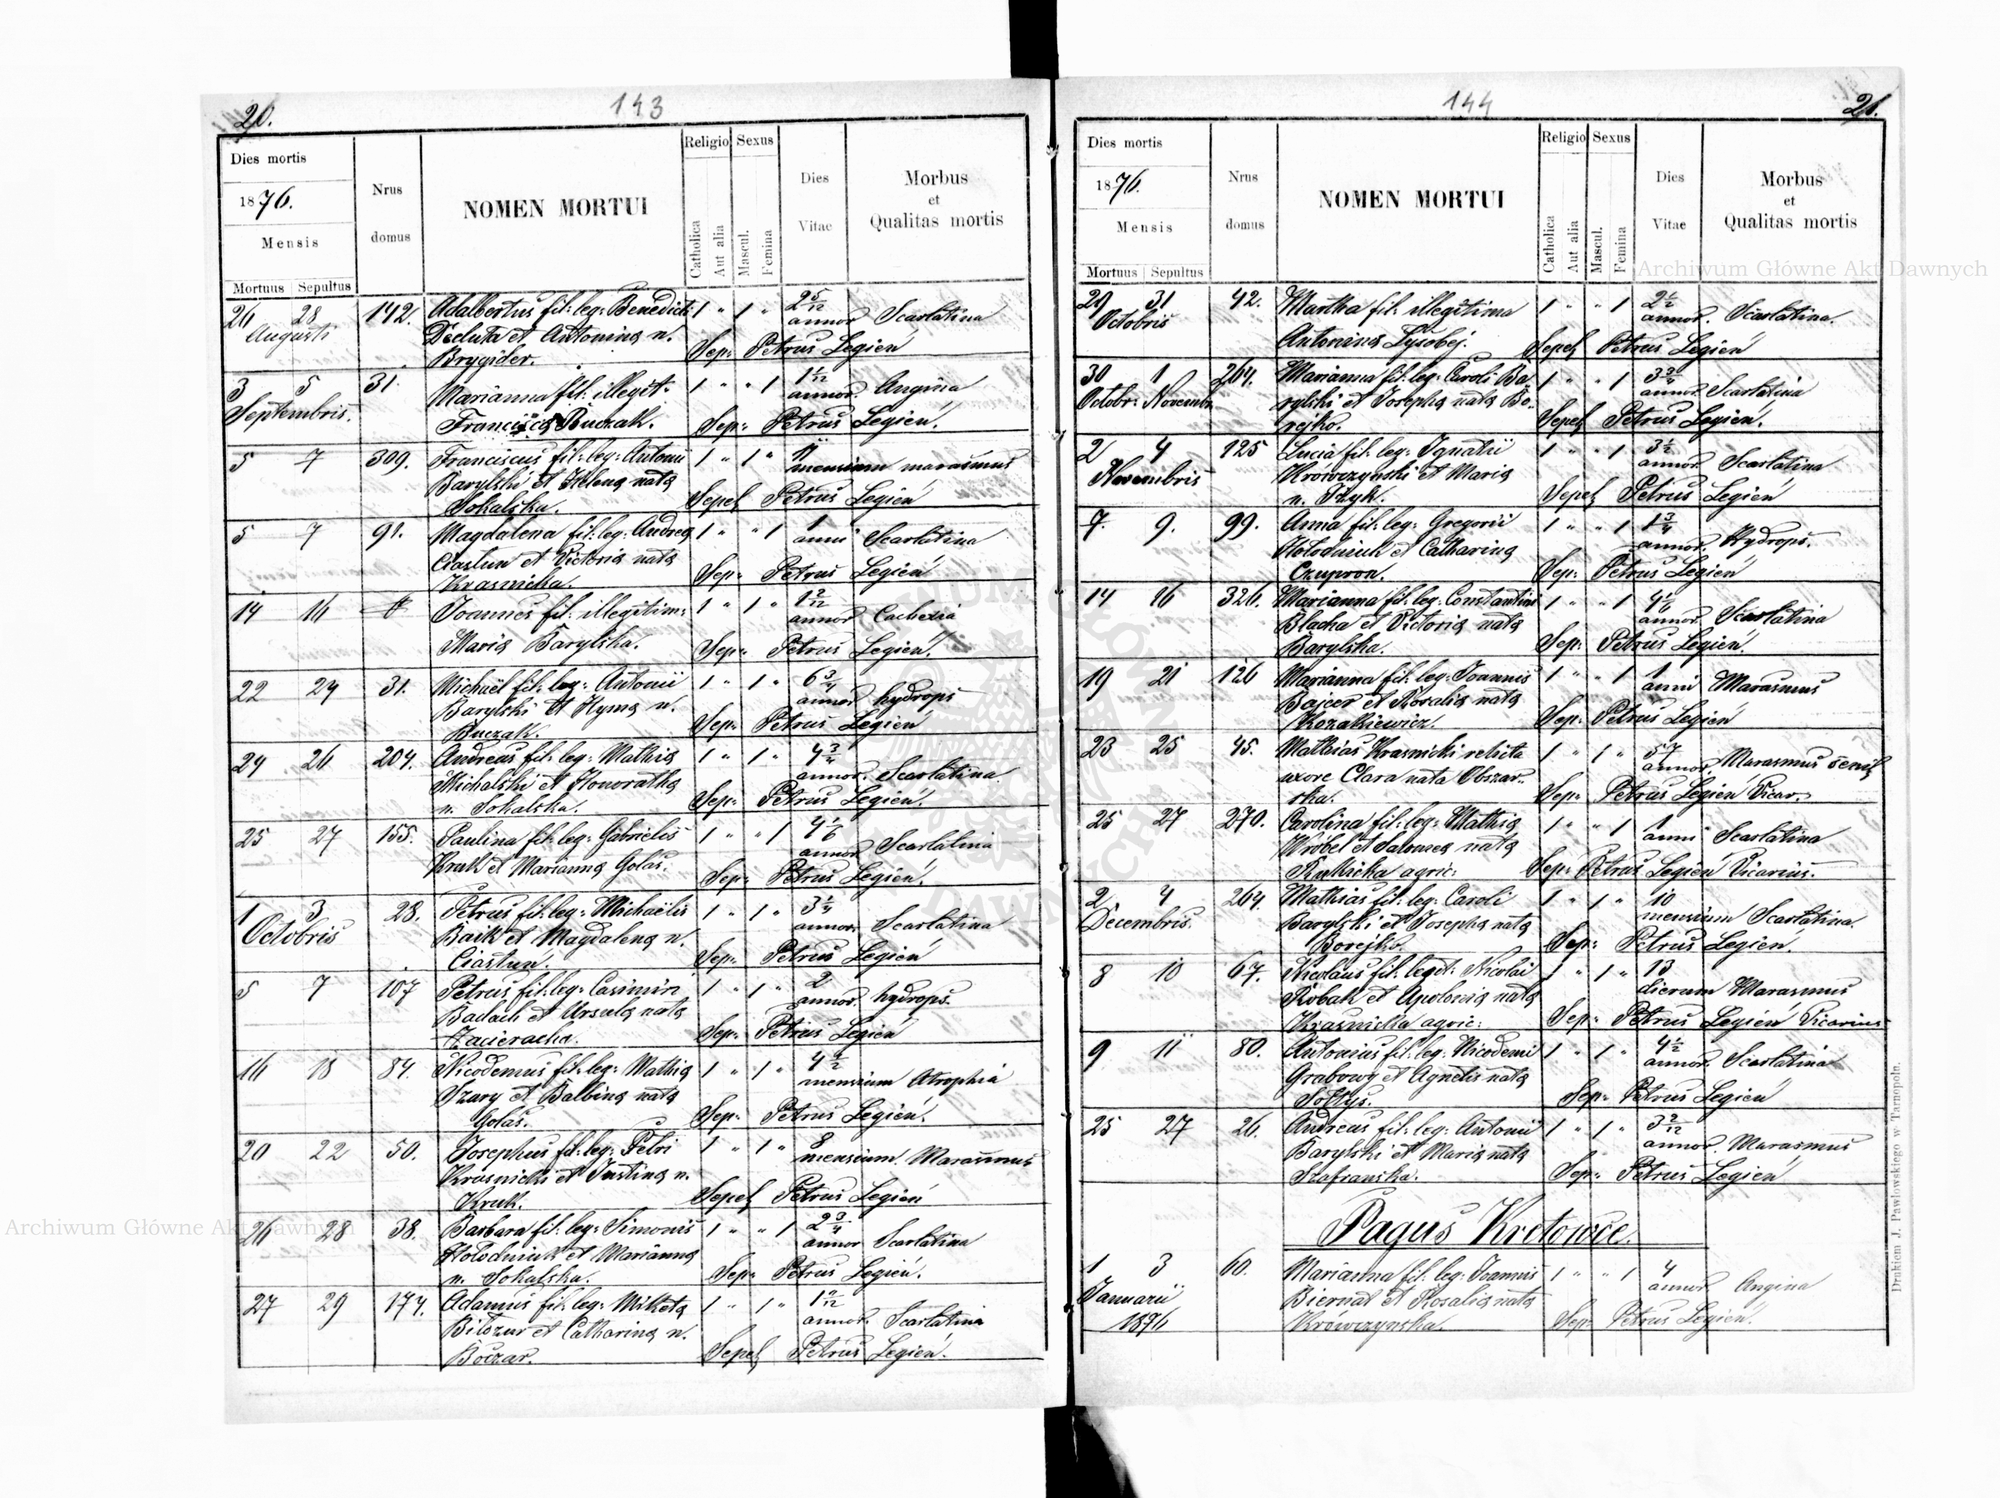 20.
143
Dies mortis
1876.
Mensis
Mortuus Sepultus
Nrus domus
NOMEN MORTUI
Religio
Catholica
Aut alia
Sexus
Mascul.
Femina
Dies Vitae
Morbus
et
Qualitas mortis
26 28 142. Adalbertus fil: leg: Benedicti 1 " 1 " 2 5/12
Augusti Decluta et Antonina n. annor Scarlatina
Brygider. Sep: Petrus Legień
3 5 31. Marianna fil: illegit: 1 " " 1 1 1/12 annor. Angina
Septembris. Francisca Buczak. Sep: Petrus Legień.
5 7 309. Franciscus fil: leg: Antonii 1 " 1 " 11
Barylski et Helena nata mensium marasmus
Sokalska. Sepel Petrus Legień
5 7 91. Magdalena fil: leg: Andrea 1 " " 1 1
Ciastun et Victoria nata anni Scarlatina
Krasnicka. Sep: Petrus Legień
14 16 Joannes fil: illegitim: 1 " 1 " 1 2/12
Maria Barylska. annor Cachexia
Sep: Petrus Legień.
22 24 31. Michaël fil: leg: Antonii 1 " 1 " 6 3/4
Barylski et Hyma n. annor. hydrops
Buczak. Sep: Petrus Legień
24 26 204. Andreas fil: leg: Mathia 1 " 1 " 4 3/4
Michalski et Honoratha annor. Scarlatina
n. Sokalska. Sep: Petrus Legień.
25 27 155. Paulina fil: leg: Gabrielis 1 " " 1 4 1/6
Kruk et Marianna Golaś. annor. Scarlatina
Sep: Petrus Legień.
1 3 28. Petrus fil: leg: Michaëlis 1 " 1 " 3 1/4
Octobris Baik et Magdalena n. annor. Scarlatina
Ciastun. Sep: Petrus Legień
5 7 107 Petrus fil: leg: Casimiri 1 " 1 " 2
Badach et Ursula nata annor. hydrops.
Sep: Petrus Legień
16 18 84. Nicodemus fil: leg: Mathia 1 " 1 " 4 1/2
Szary et Balbina nata mensium Atrophia
Golaś. Sep: Petrus Legień.
20 22 50. Josephus fil: leg: Petri 1 " 1 " 8
Krasnicki et Justina n. mensium Marasmus
Kruk. Sepel Petrus Legień
26 28 38. Barbara fil: leg: Simonis 1 " " 1 2 3/4
Hołodniuk et Marianna annor Scarlatina
n. Sokalska. Sep: Petrus Legień.
27 29 174. Adamus fil: leg: Mikita 1 " 1 " 1 9/12
Bilozur et Catharina n. annor. Scarlatina
Boczar. Sepel Petrus Legień.
144
21.
Dies mortis
1876.
Mensis
Mortuus Sepultus
Nrus domus
NOMEN MORTUI
Religio
Catholica
Aut alia
Sexus
Mascul.
Femina
Dies Vitae
Morbus
et
Qualitas mortis
29 31 42. Martha fil: illegitima 1 " " 1 2 1/2
Octobris Antonina Lysobej. annor. Scarlatina.
Sepel Petrus Legień
30 1 264. Marianna fil: leg: Caroli Ba- 1 " " 1 3 3/4
Octobr: Novembr. rylski et Josepha nata Bo- annor. Scarlatina
rejko. Sepel Petrus Legień.
2 4 125 Lucia fil: leg: Ignatii 1 " " 1 3 1/2
Novembris Krówczynski et Maria annor. Scarlatina
n. Izyk. Sepel Petrus Legień
7. 9. 99. Anna fil: leg: Gregorii 1 " " 1 1 3/4
Hołodniuk et Catharina annor. Hydrops.
Czupron. Sep: Petrus Legień
14 16 326. Marianna fil: leg: Constantini 1 " " 1 4 1/6
Blacha et Victoria nata annor. Scarlatina
Barylska. Sep: Petrus Legień.
19 21 126 Marianna fil: leg: Joannis 1 " " 1 1
Bajcer et Rosalia nata anni Marasmus
Kozakiewicz. Sep: Petrus Legień
23 25 45. Mathias Krasnicki relicta 1 " 1 " 57
uxore Clara nata Obszar- annor. Marasmus senil
ska. Sep: Petrus Legień Vicar.
25 27 270. Carolina fil: leg: Mathia 1 " " 1 1
Wróbel et Salomea nata anni Scarlatina
Rubicka agric: Sep: Petrus Legień Vicarius.
2 4 264. Mathias fil: leg: Caroli 1 " 1 " 10
Decembris. Barylski et Josepha nata mensium Scarlatina.
Borejko. Sep: Petrus Legień.
8 10 67. Nicolaus fil: legit: Nicolai 1 " 1 " 13
Robak et Apolonia nata dierum Marasmus
Krasnicka agric: Sep: Petrus Legień Vicarius
9 11 80. Antonius fil: leg: Nicodemi 1 " 1 " 4 1/2
Grabowy et Agnetis nata annor. Scarlatina
Sołtys. Sep: Petrus Legień
25 27 26. Andreas fil: leg: Antonii 1 " 1 " 3 2/12
Barylski et Maria nata annor. Marasmus
Szafranska. Sep: Petrus Legień
Pagus Krotowce.
1 3 60. Marianna fil: leg: Joannis 1 " " 1 4
Januarii Biernat et Rosalia nata annor Angina
1876 Krówczynska. Sep: Petrus Legień.
Drukiem J. Pawłowskiego w Tarnopolu.
Archiwum Główne Akt Dawnych
Archiwum Główne Akt Dawnych